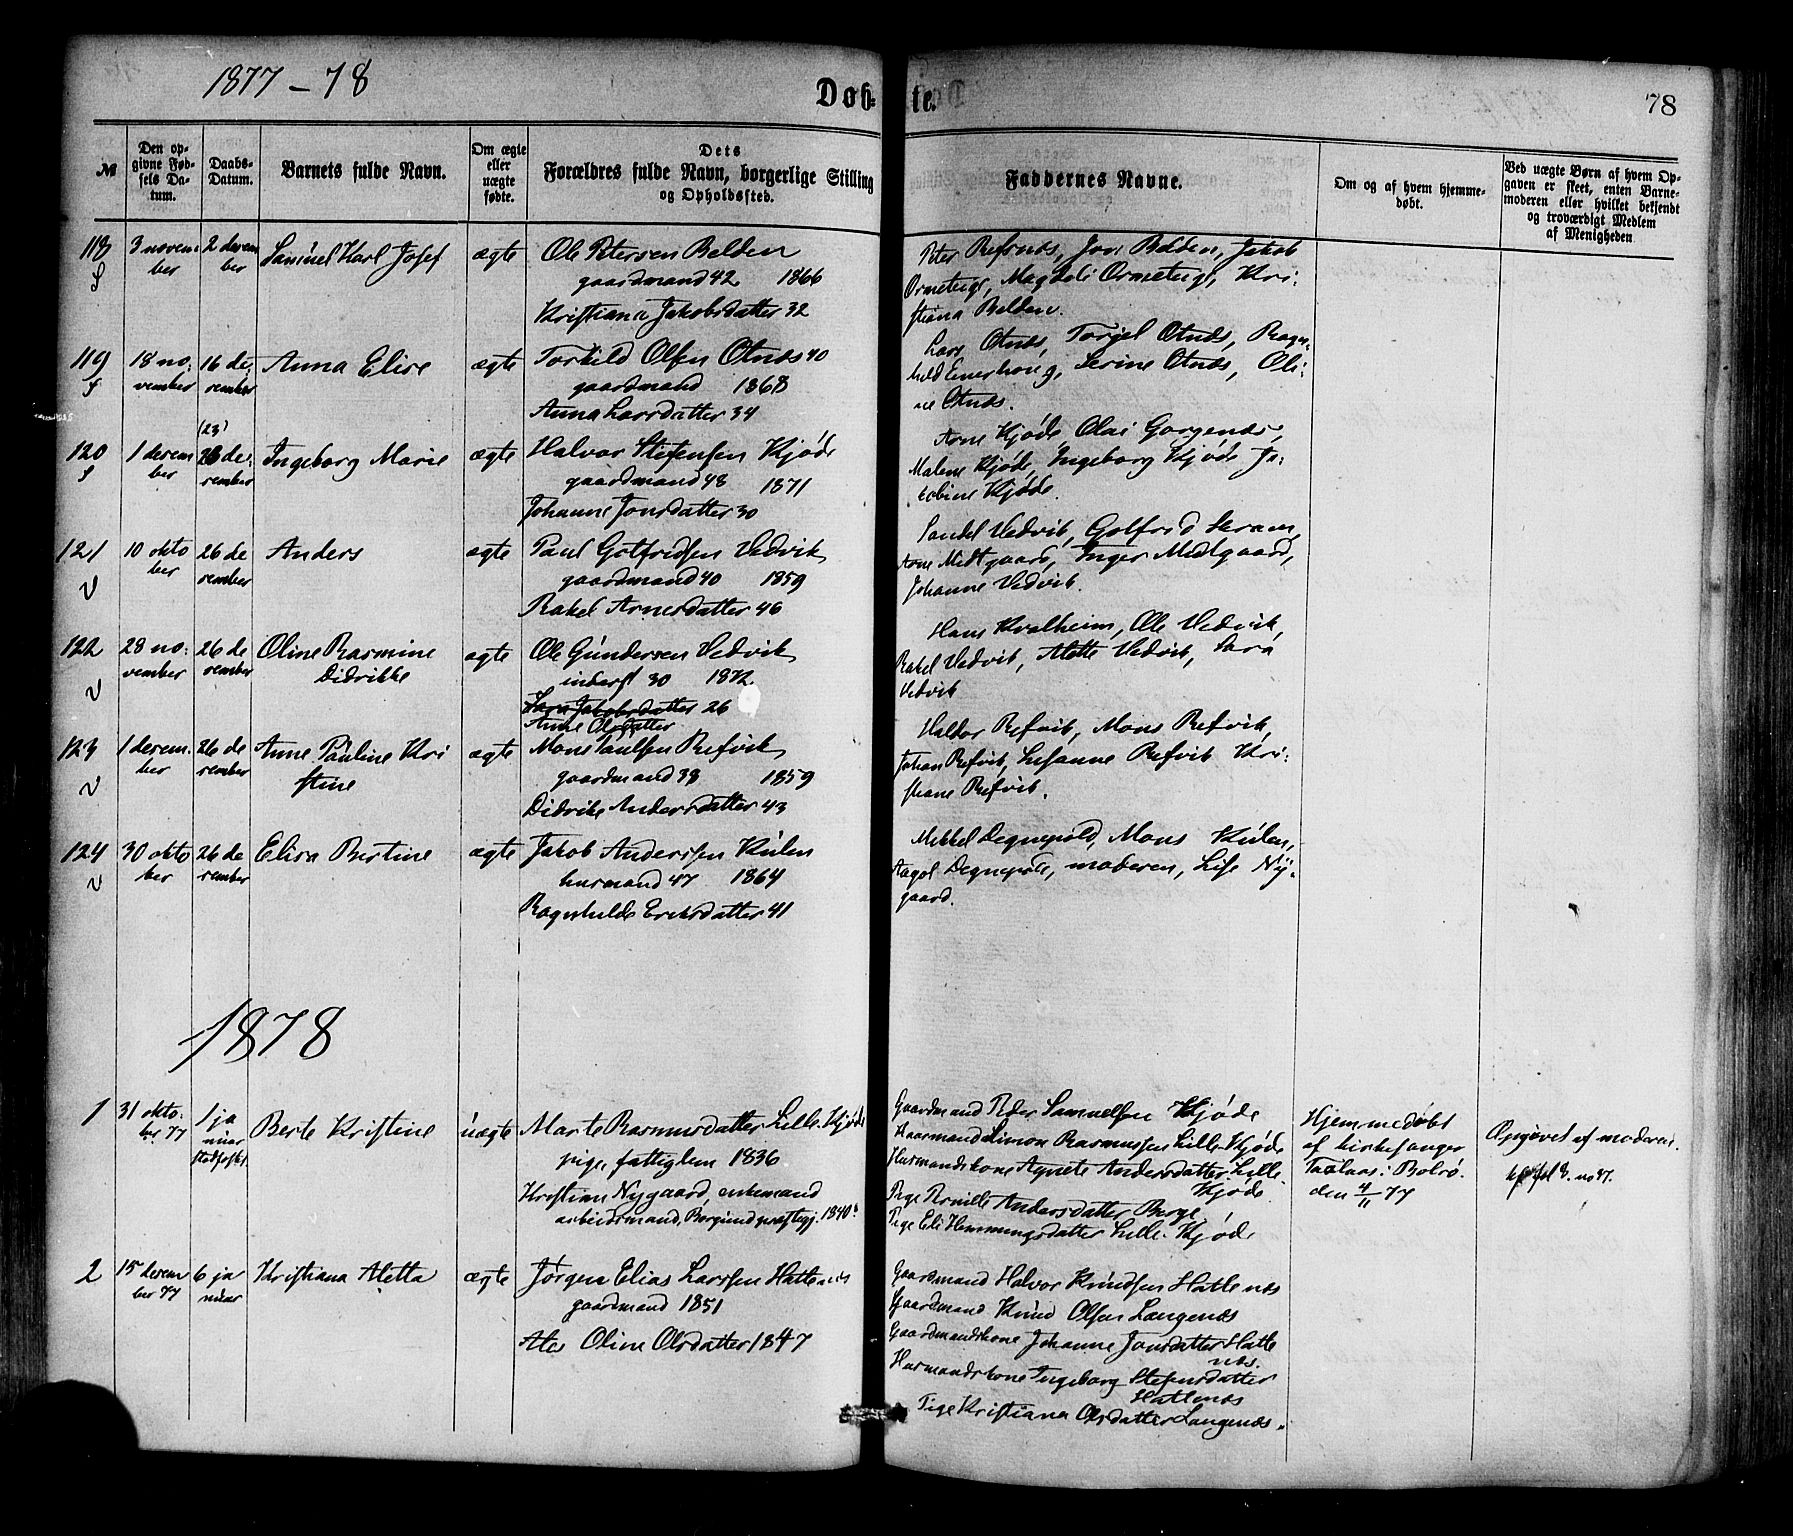 1877-78
Døb-
te.
78
№
Den op-
givne Fød-
sels Da-
tum.
Daabs-
Datum.
Barnets fulde Navn.
Om ægte
eller
uægte
fødte.
Dets
Forældres fulde Navn, borgerlige Stilling
og Opholdssted.
Faddernes Navne.
Om og af hvem hjemme-
døbt.
Ved uægte Børn af hvem Op-
gaven er skeet, enten Barne-
moderen eller hvilket bekjendt
og troværdigt Medlem
af Menigheden
118
S
3 novem
ber
2 decem
ber
Samúel Karl Josef
ægte
Ole Petersen Belden
gaardmand 42 1866
Kristiana Jakobsdatter 32
Peter Refsnæs, Jon Belden, Jakob
Ormeteigt, Magdeli Ormeteigt, Kri-
stiana Belden.
119
S
18 no-
vember
16 de-
cember
Anna Elise
ægte
Torkild Olsen Otnæs 40
gaardmand 1868
Anna Larsdatter 34
Lars Otnæs, Torjel Otnæs, Ragn-
hild Ennerhoug, Serine Otnæs, Oli-
ne Otnæs.
120
S
1 decem
ber
(23)
23 de-
cember
Ingeborg Marie
ægte
Halvor Stefensen Kjøde
gaardmand 48 1871
Johanne Jonsdatter 30
Arne Kjøde, Olai Gorgenæs,
Malene Kjøde, Ingeborg Kjøde Ja-
cobine Kjøde.
121
V
10 okto
ber
26 de
cember
Anders
ægte
Paul Gotfridsen Vedvik
gaardmand 40 1859
Rakel Arnesdatter 46
Sandel Vedvik, Gotfred Skram,
Arne Midtgaard, Inger Midtgaard,
Johanne Vedvik.
122
V
28 no-
vember
26 de
cember
Oline Rasmine
Didrikke
ægte
Ole Gúndersen Vedvik
inderst 30 1872
Sara Jakobsdatter 26
Anne Olsdatter
Hans Kvalheim, Ole Vedvik,
Rakel Vedvik, Alette Vedvik, Sara
Vedvik
123
V
1 decem-
ber
26 de
cember
Anne Paúline Kri
stine
ægte
Mons Paúlsen Refvik
gaardmand 38 1859
Didrike Andersdatter 43
Haldor Refvik, Mons Refvik,
Johan Refvik, Susanne Refvik Kri-
stiane Refvik.
124
V
30 okto
ber
26 de
cember
Elisa Bertine
ægte
Jakob Anderssen Kúlen
husmand 47 1864
Ragnhilde Eriksdatter 41
Mikkel Degnepold, Mons Kúlen,
Aagot Degnepold, moderen, Lise Ny-
gaard.
1878
1
31 okto-
ber 77
1 ja
núar
stadfæstet
Berte Kristine
úægte
Marte Rasmusdatter Lille-Kjøde
pige, fattiglem 1836
Kristian Nygaard, enkemand
arbeidsmand, Borgund præstegj. 1840
Gaardmand Peder Samuelsen Kjøde
Husmand Simon Rasmussen Lille-Kjøde
Husmandskone Agnete Andersdatter Lille-
Kjøde
Pige Pernille Andersdatter Berge
Pige Eli Hemmingsdatter Lille-Kjøde
Hjemmedøbt
af kirkesanger
i Bolsø
den 4/11 77
Opgivet af moderen.
2
15 decem
ber 77
6 ja
núar
Kristiana Aletta
ægte
Jørgen Elias Larssen Hatlenæs
gaardmand 1851
Oline Olsdatter 1847
Gaardmand Halvor Knúdsen Hatlenæs
Gaardmand Knúd Olsen Langenæs
Gaardmandskone Johanne Jonsdatter Hatle
næs.
Husmandskone Ingeborg Stefensdatter
Hatlenæs
Pige Kristiana Olsdatter Langenæs.